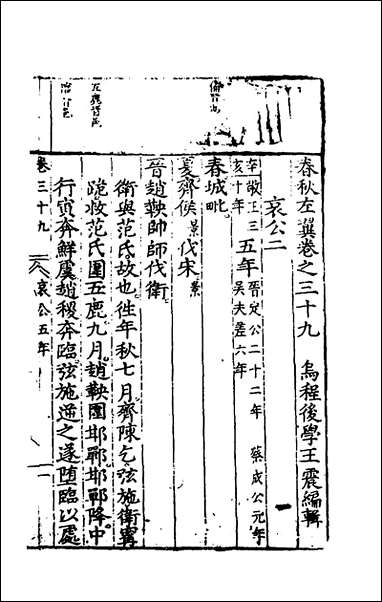 春秋左翼卷之三十九　烏程後學王震編輯
哀公二
辛亥
敬王三十年
五年
晉定公二十二年　蔡成公元年
吳夫差六年
春城毗。
夏齊侯景伐宋景
晉趙鞅帥師伐衛
衛與范氏。故也往年秋七月齊陳乞弦施衛寗
跪救范氏圍五鹿九月。趙鞅圍邯鄲邯鄲降。中
行寅奔鮮虞趙稷奔臨弦施逆之遂墮臨以處
卷三十九　哀公五年　一
五鹿晉邑
臨晉邑